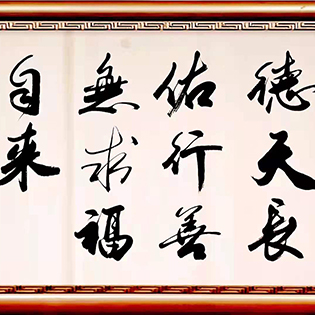 德天長
佑行善
無求福
自来